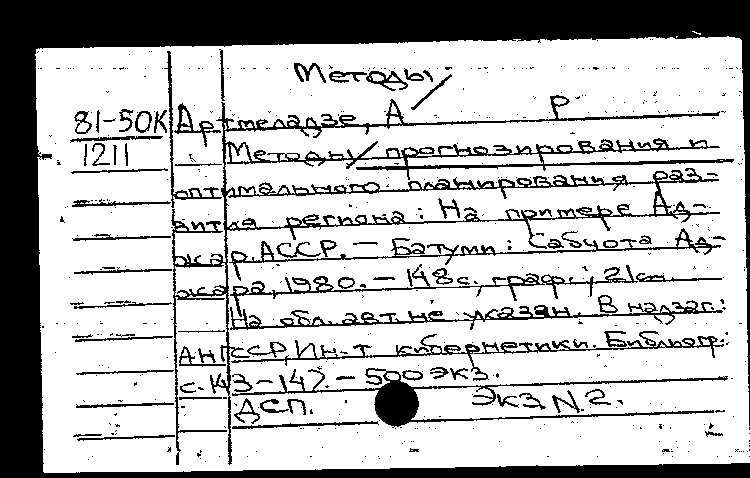 Методы
81-50К Артмеладзе, А Р
1211 Методы прогнозирования и
оптимального планирования раз-
вития региона: На примере Ад-
жар.АССР. — Батуми: Сабчота Ад-
жара, 1980. — 148с., граф.; 21см.
На обл. авт. не указан. В надзаг.:
АН ГССР, Ин-т кибернетики. Библиогр.:
с. 143-147. — 500 экз.
ДСП. Экз. N.2.